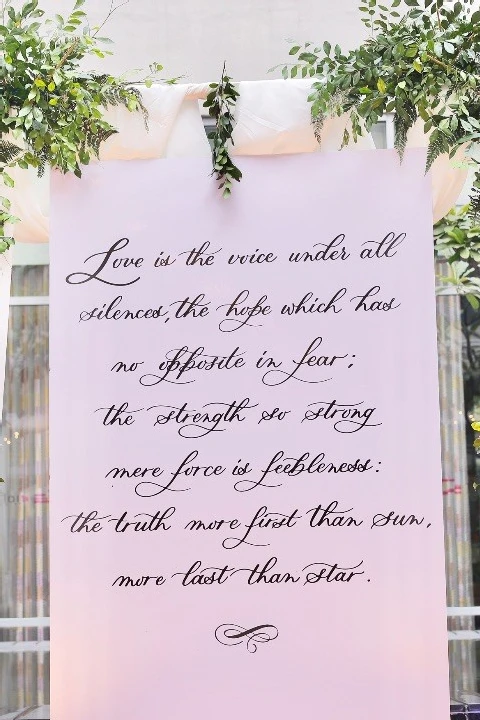 Love is the voice under all
silences, the hope which has
no opposite in fear;
the strength so strong
mere force is feebleness:
the truth more first than sun,
more last than star.